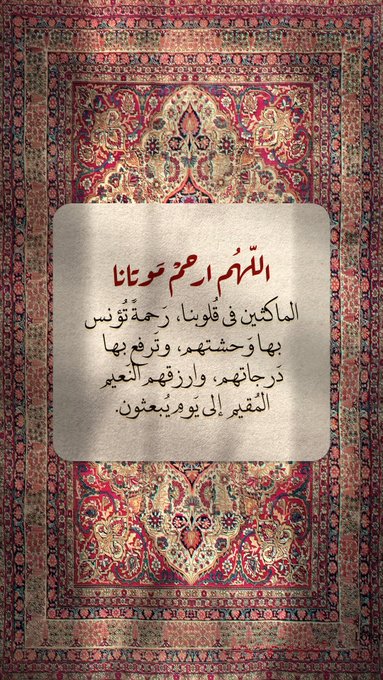 اللّهُم ارحمْ مَوتانا
الماكثين في قُلوبنا، رَحمةً تُؤنس
بها وَحشتهم، وتَرفع بها
دَرجاتهم، وارزقهم النَعيم
المُقيم إلى يَوم يُبعثون.